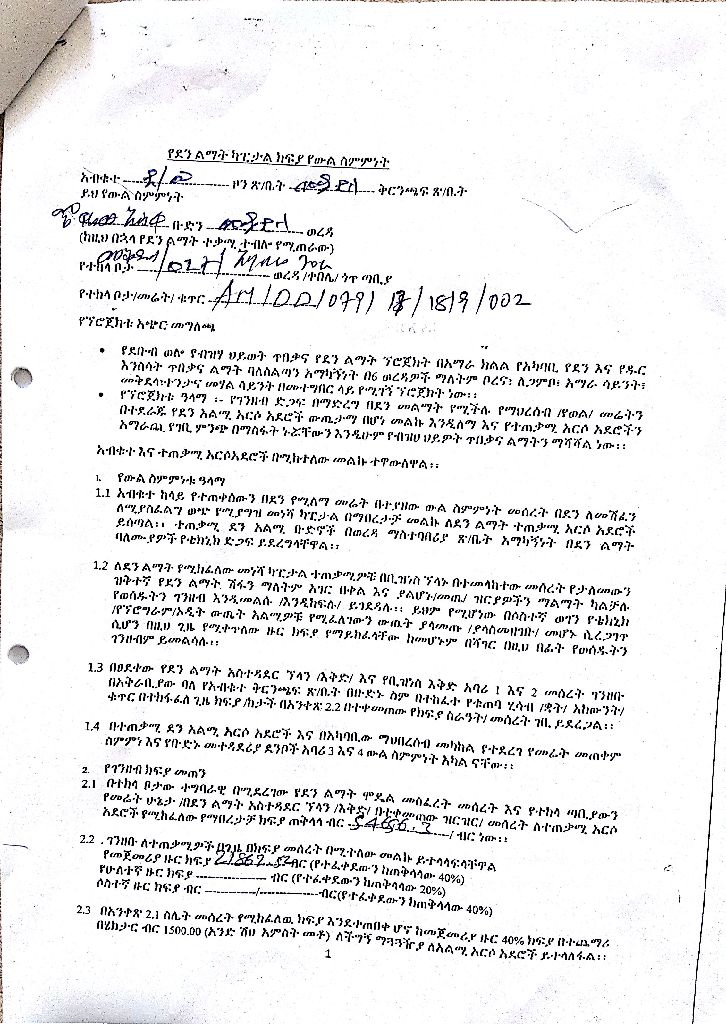 የደን ልማት ካፒታል ክፍያ የውል ስምምነት
አብቁተ ደ/ወ ዞን ጽ/ቤት ቅርንጫፍ ጽ/ቤት
ይህ የውል ስምምነት
ቡድን ወረዳ
(ከዚህ በኋላ የደን ልማት ተቃሚ ተብሎ የሚጠራው)
የተከላ ቦታ /027/ ወረዳ /ተበሌ/ ነጥ ጣቢያ
የተከላ ቦታ/መሬት/ ቁጥር AM/DD/079/ 17/18/9/002
የፕሮጀክቱ አጭር መግለጫ
• የደቡብ ወሎ የብዝሃ ህይወት ጥበቃና የደን ልማት ፕሮጀክት በአማራ ክልል የአካባቢ የደን እና የዱር
እንስሳት ጥበቃና ልማት ባለስልጣን አማካኝነት በ6 ወረዳዎች ማለትም ቦረና፣ ሌጋምቦ፣ አማራ ሳይንት፣
መቅደላ፣ተንታና መሃል ሳይንት በመተግበር ላይ የሚገኝ ፕሮጀክት ነው፡፡
• የፕሮጀክቱ ዓላማ ፡- የገንዘብ ድጋፍ በማድረግ በደን መልማት የሚችሉ የማህረሰብ /የወል/ መሬትን
በተደራጁ የደን አልሚ አርሶ አደሮች ውጤታማ በሆነ መልኩ እንዲለማ እና የተጠቃሚ አርሶ አደሮችን
አማራጪ የገቢ ምንጭ በማስፋት ኑሯቸውን እንዲሁም የብዝሀ ህይዎት ጥበቃና ልማትን ማሻሻል ነው፡፡
አብቁተ እና ተጠቃሚ አርሶአደሮች በሚከተለው መልኩ ተዋውለዋል፡፡
1. የውል ስምምነቱ ዓላማ
1.1 አብቁተ ከላይ የተጠቀሰውን በደን የሚለማ መሬት በተያዘው ውል ስምምነት መሰረት በደን ለመሸፈን
ለሚያስፈልግ ወጭ የሚያግዝ መነሻ ካፒታል በማበረታቻ መልኩ ለደን ልማት ተጠቃሚ አርሶ አደሮች
ይሰጣል፡፡ ተጠቃሚ ደን አልሚ ቡድኖች በወረዳ ማስተባበሪያ ጽ/ቤት አማካኝነት በደን ልማት
ባለሙያዎች የቴክኒክ ድጋፍ ይደረግላቸዋል፡፡
1.2 ለደን ልማት የሚከፈለው መነሻ ካፒታል ተጠቃሚዎቹ በቢዝነስ ፕላኑ በተመላከተው መሰረት የታለመውን
ዝቅተኛ የደን ልማት ሽፋን ማለትም አገር በቀል እና ያልሆኑ/መጤ/ ዝርያዎችን ማልማት ካልቻሉ
የወሰዱትን ገንዘብ እንዲመልሱ /እንዲከፍሉ/ ይገደዳሉ፡፡ ይህም የሚሆነው በሶስተኛ ወገን የቴክኒክ
/የፕሮግራም/ኦዲት ውጤት አልሚዎቹ የሚፈለገውን ውጤት ያላመጡ /ያላስመዘገቡ/ መሆኑ ሲረጋገጥ
ሲሆን በዚህ ጊዜ የሚቀጥለው ዙር ክፍያ የማይከፈላቸው ከመሆኑም በሻገር በዚህ በፊት የወሰዱትን
ገንዘብም ይመልሳሉ፡፡
1.3 በፀደቀው የደን ልማት አስተዳደር ፕላን /እቅድ/ እና የቢዝነስ እቅድ አባሪ 1 እና 2 መሰረት ገንዘቡ
በአቅራቢያው ባለ የአብቁተ ቅርንጫፍ ጽ/ቤት በቡድኑ ስም በተከፈተ የቁጠባ ሂሳብ /ቋት/ አካውንት/
ቁጥር በተከፋፈለ ጊዜ ክፍያ /ከታች በአንቀጽ 2.2 በተቀመጠው የክፍያ ስራዓት/ መሰረት ገቢ ይደረጋል፡፡
1.4 በተጠቃሚ ደን አልሚ አርሶ አደሮች እና በአካባቢው ማህበረሰብ መካከል የተደረገ የመሬት መጠቀም
ስምምነ እና የቡድኑ መተዳደሪያ ደንቦች አባሪ 3 እና 4 ውል ስምምነት አካል ናቸው፡፡
2. የገንዘብ ክፍያ መጠን
2.1 በተከላ ቦታው ተግባራዊ በሚደረገው የደን ልማት ሞዴል መስፈረት መሰረት እና የተከላ ጣቢያውን
የመሬት ሁኔታ /በደን ልማት አስተዳደር ፕላን /እቅድ/ በተቀመጠው ዝርዝር/ መሰረት ለተጠቃሚ አርሶ
አደሮች የሚከፈለው የማበረታቻ ክፍያ ጠቅላላ ብር 54656.3 / ብር ነው፡፡
2.2 . ገንዘቡ ለተጠቃሚዎች በጊዜ በክፍያ መሰረት በሚተለው መልኩ ይተላላፍላቸዋል
የመጀመሪያ ዙር ክፍያ 21862.52ብር (የተፈቀደውን ከጠቅላላው 40%)
የሁለተኛ ዙር ክፍያ ብር (የተፈቀደውን ከጠቅላላው 20%)
ሶስተኛ ዙር ክፍያ ብር / ብር(የተፈቀደውን ከጠቅላላው 40%)
2.3 በአንቀጽ 2.1 ስሌት መሰረት የሚከፈለዉ ክፍያ እንደተጠበቀ ሆኖ ከመጀመሪያ ዙር 40% ክፍያ በተጨማሪ
በሄክታር ብር 1500.00 (አንድ ሽህ አምስት መቶ) ለችግኝ ማጓጓዥያ ለአልሚ አርሶ አደሮች ይተላለፋል፡፡
1